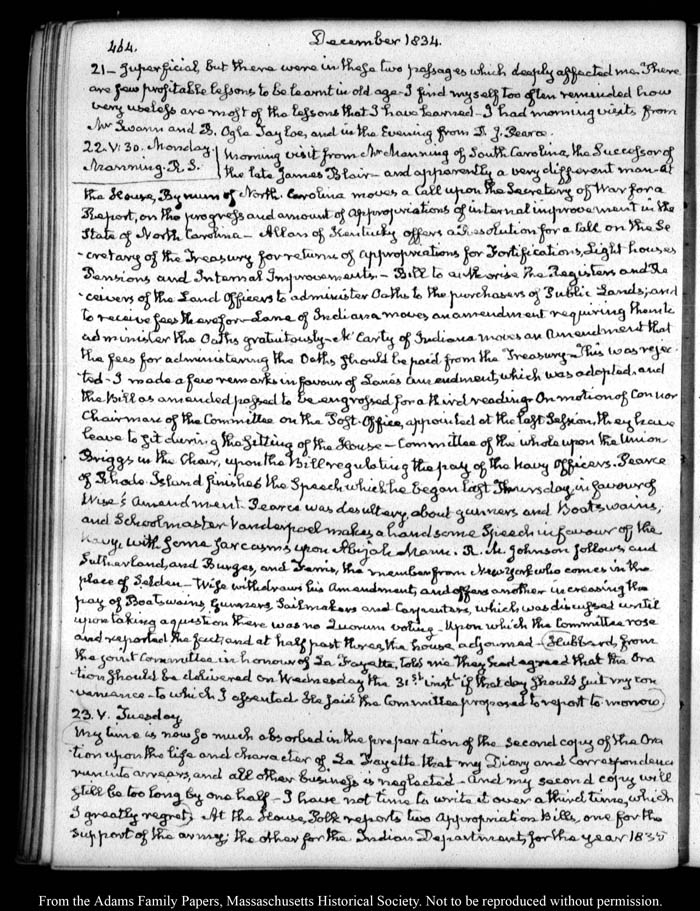 464.
December 1834.
21 — superficial, but there were in these two passages which deeply affected me. "There
are few profitable lessons to be learnt in old age — I find myself too often reminded how
very useless are most of the lessons that I have learned — I had morning visits from
Mr Swann and B. Ogle Tayloe, and in the Evening from D. J. Pearce.
22. V: 30. Monday
Manning. R. S.
Morning visit from Mr Manning of South Carolina, the Successor of
the late James Blair — and apparently a very different man — at
the House, Bynum of North Carolina moves a Call upon the Secretary of War for a
Report, on the progress and amount of appropriations of internal improvement in the
State of North Carolina — Allan of Kentucky offers a Resolution for a Call on the Se
-cretary of the Treasury for returns of appropriations for Fortifications, Light houses
Pensions and Internal Improvements — Bill to authorise the Registers and Re
-ceivers of the Land Officers to administer Oaths to the purchasers of Public Lands; and
to receive fees therefor — Lane of Indiana moves an amendment requiring them to
administer the Oaths gratuitously — McCarty of Indiana moves an Amendment that
the fees for administering the Oaths should be paid from the Treasury — This was rejec-
ted — I made a few remarks in favour of Lane's Amendment, which was adopted, and
the Bill as amended passed to be engrossed for a third reading. On motion of Connor
Chairman of the Committee on the Post-Office, appointed at the last Session, they have
leave to sit during the sitting of the House — Committee of the whole upon the Union
Briggs in the Chair, upon the Bill regulating the pay of the Navy Officers. Pearce
of Rhode Island finished the Speech which he began last Thursday, in favour of
Wise's Amendment. Pearce was desultory, about gunners and Boatswains,
and Schoolmaster Vanderpoel makes a handsome Speech in favour of the
Navy, with some sarcasms upon Abijah Mann. R. M. Johnson follows, and
Sutherland, and Burges, and Ferris, the member from New York who comes in the
place of Selden — Wise withdraws his Amendment, and offers another increasing the
pay of Boatswains, Gunners, Sailmakers and Carpenters, which was discussed until
upon taking a question there was no Quorum voting. Upon which the Committee rose
and reported the fact, and at half past three, the house adjourned — Hubbard, from
the joint Committee in honour of La Fayette, told me they had agreed that the Ora
-tion should be delivered on Wednesday the 31st inst. if that day should suit my con
-venience — to which I assented. He said the Committee proposed to report to morrow.
23. V. Tuesday
My time is now so much absorbed in the preparation of the second copy of the Ora
-tion upon the life and character of La Fayette that my Diary and Correspondence
run into arrears, and all other business is neglected — And my second copy will
still be too long by one half — I have not time to write it over a third time, which
I greatly regret. At the House, Polk reports two Appropriation Bills, one for the
support of the army; the other for the Indian Department, for the year 1835
From the Adams Family Papers, Massachusetts Historical Society. Not to be reproduced without permission.